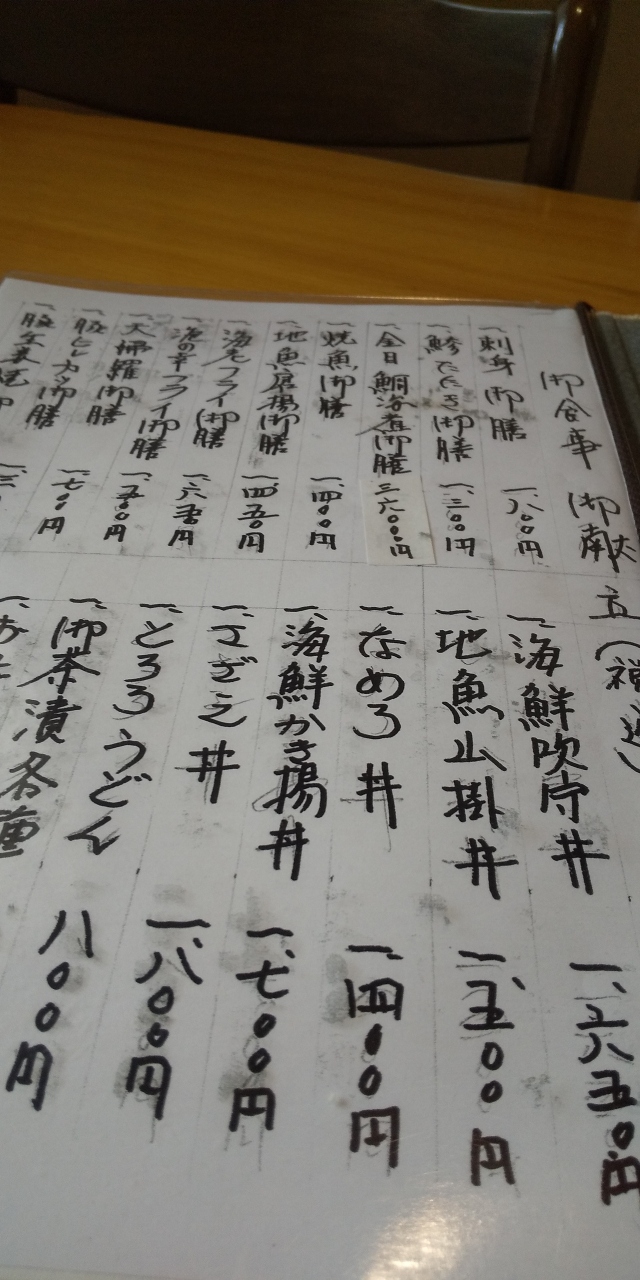 御食事 御献立
一、刺身御膳 一、八〇〇円
一、鯵たたき御膳 一、三〇〇円
一、金目鯛 御膳 三六〇〇円
一、焼魚御膳 一、四〇〇円
一、地魚唐揚御膳 一、四五〇円
一、海老フライ御膳 一、六五〇円
一、海の幸フライ御膳 一、五〇〇円
一、天婦羅御膳 一、七〇〇円
一、豚ヒレカツ御膳 一、三
一、豚生姜焼御
一、海鮮吹寄丼 五〇円
一、地魚山掛丼 一、五〇〇円
一、なめろう丼 一、四〇〇円
一、海鮮かき揚丼 一、七〇〇円
一、さざえ丼 一、八〇〇円
一、とろろうどん 八〇〇円
一、御茶漬各種